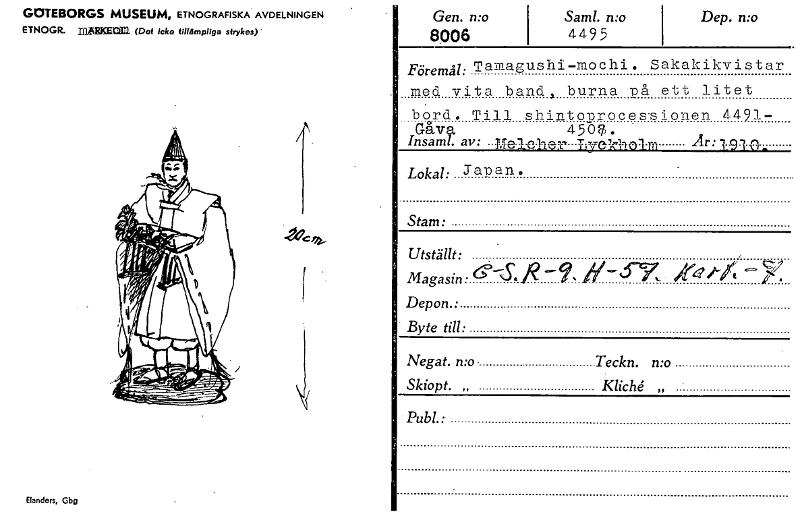 GÖTEBORGS MUSEUM, ETNOGRAFISKA AVDELNINGEN
ETNOGR. (Det icke tillämpliga strykes)
20 cm
Elanders, Gbg
Gen. n:o Saml. n:o Dep. n:o
8006 4495
Föremål: Tamagushi-mochi. Sakakikvistar
med vita band, burna på ett litet
bord. Till shintoprocessionen 4491-
Gåva 4508.
Insaml. av: Melcher Lyckholm År: 1910.
Lokal: Japan.
Stam:
Utställt:
Magasin: G-S.R-9. H-57. Kart.-7.
Depon.:
Byte till:
Negat. n:o Teckn. n:o
Skiopt. „ Kliché „
Publ.: